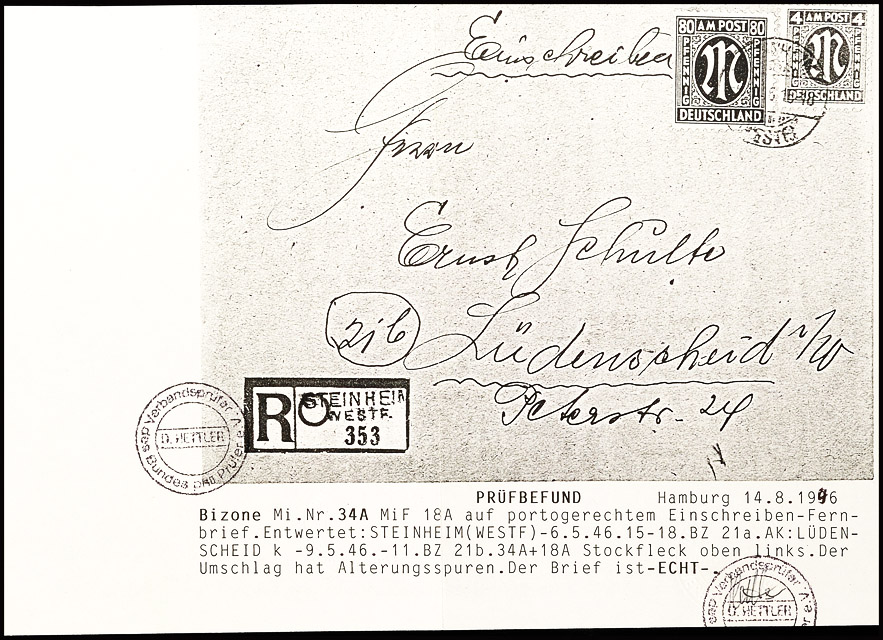 Einschreiben
80 AM POST 80
PFENNIG PFENNIG
DEUTSCHLAND
4 AM POST 4
PFENNIG PFENNIG
DEUTSCHLAND
Herrn
Ernst Schulte
21b Lüdenscheid i/W
Peterstr. 24
R STEINHEIM
WESTF.
353
Verbandsprüfer
D. HETTLER
des Bundes Prüfer e.V.
PRÜFBEFUND Hamburg 14.8.1996
Bizone Mi.Nr.34A MiF 18A auf portogerechtem Einschreiben-Fern-
brief.Entwertet:STEINHEIM(WESTF)-6.5.46.15-18.BZ 21a.AK:LÜDEN-
SCHEID k -9.5.46.-11.BZ 21b.34A+18A Stockfleck oben links.Der
Umschlag hat Alterungsspuren.Der Brief ist-ECHT-.
Verbandsprüfer
D. HETTLER